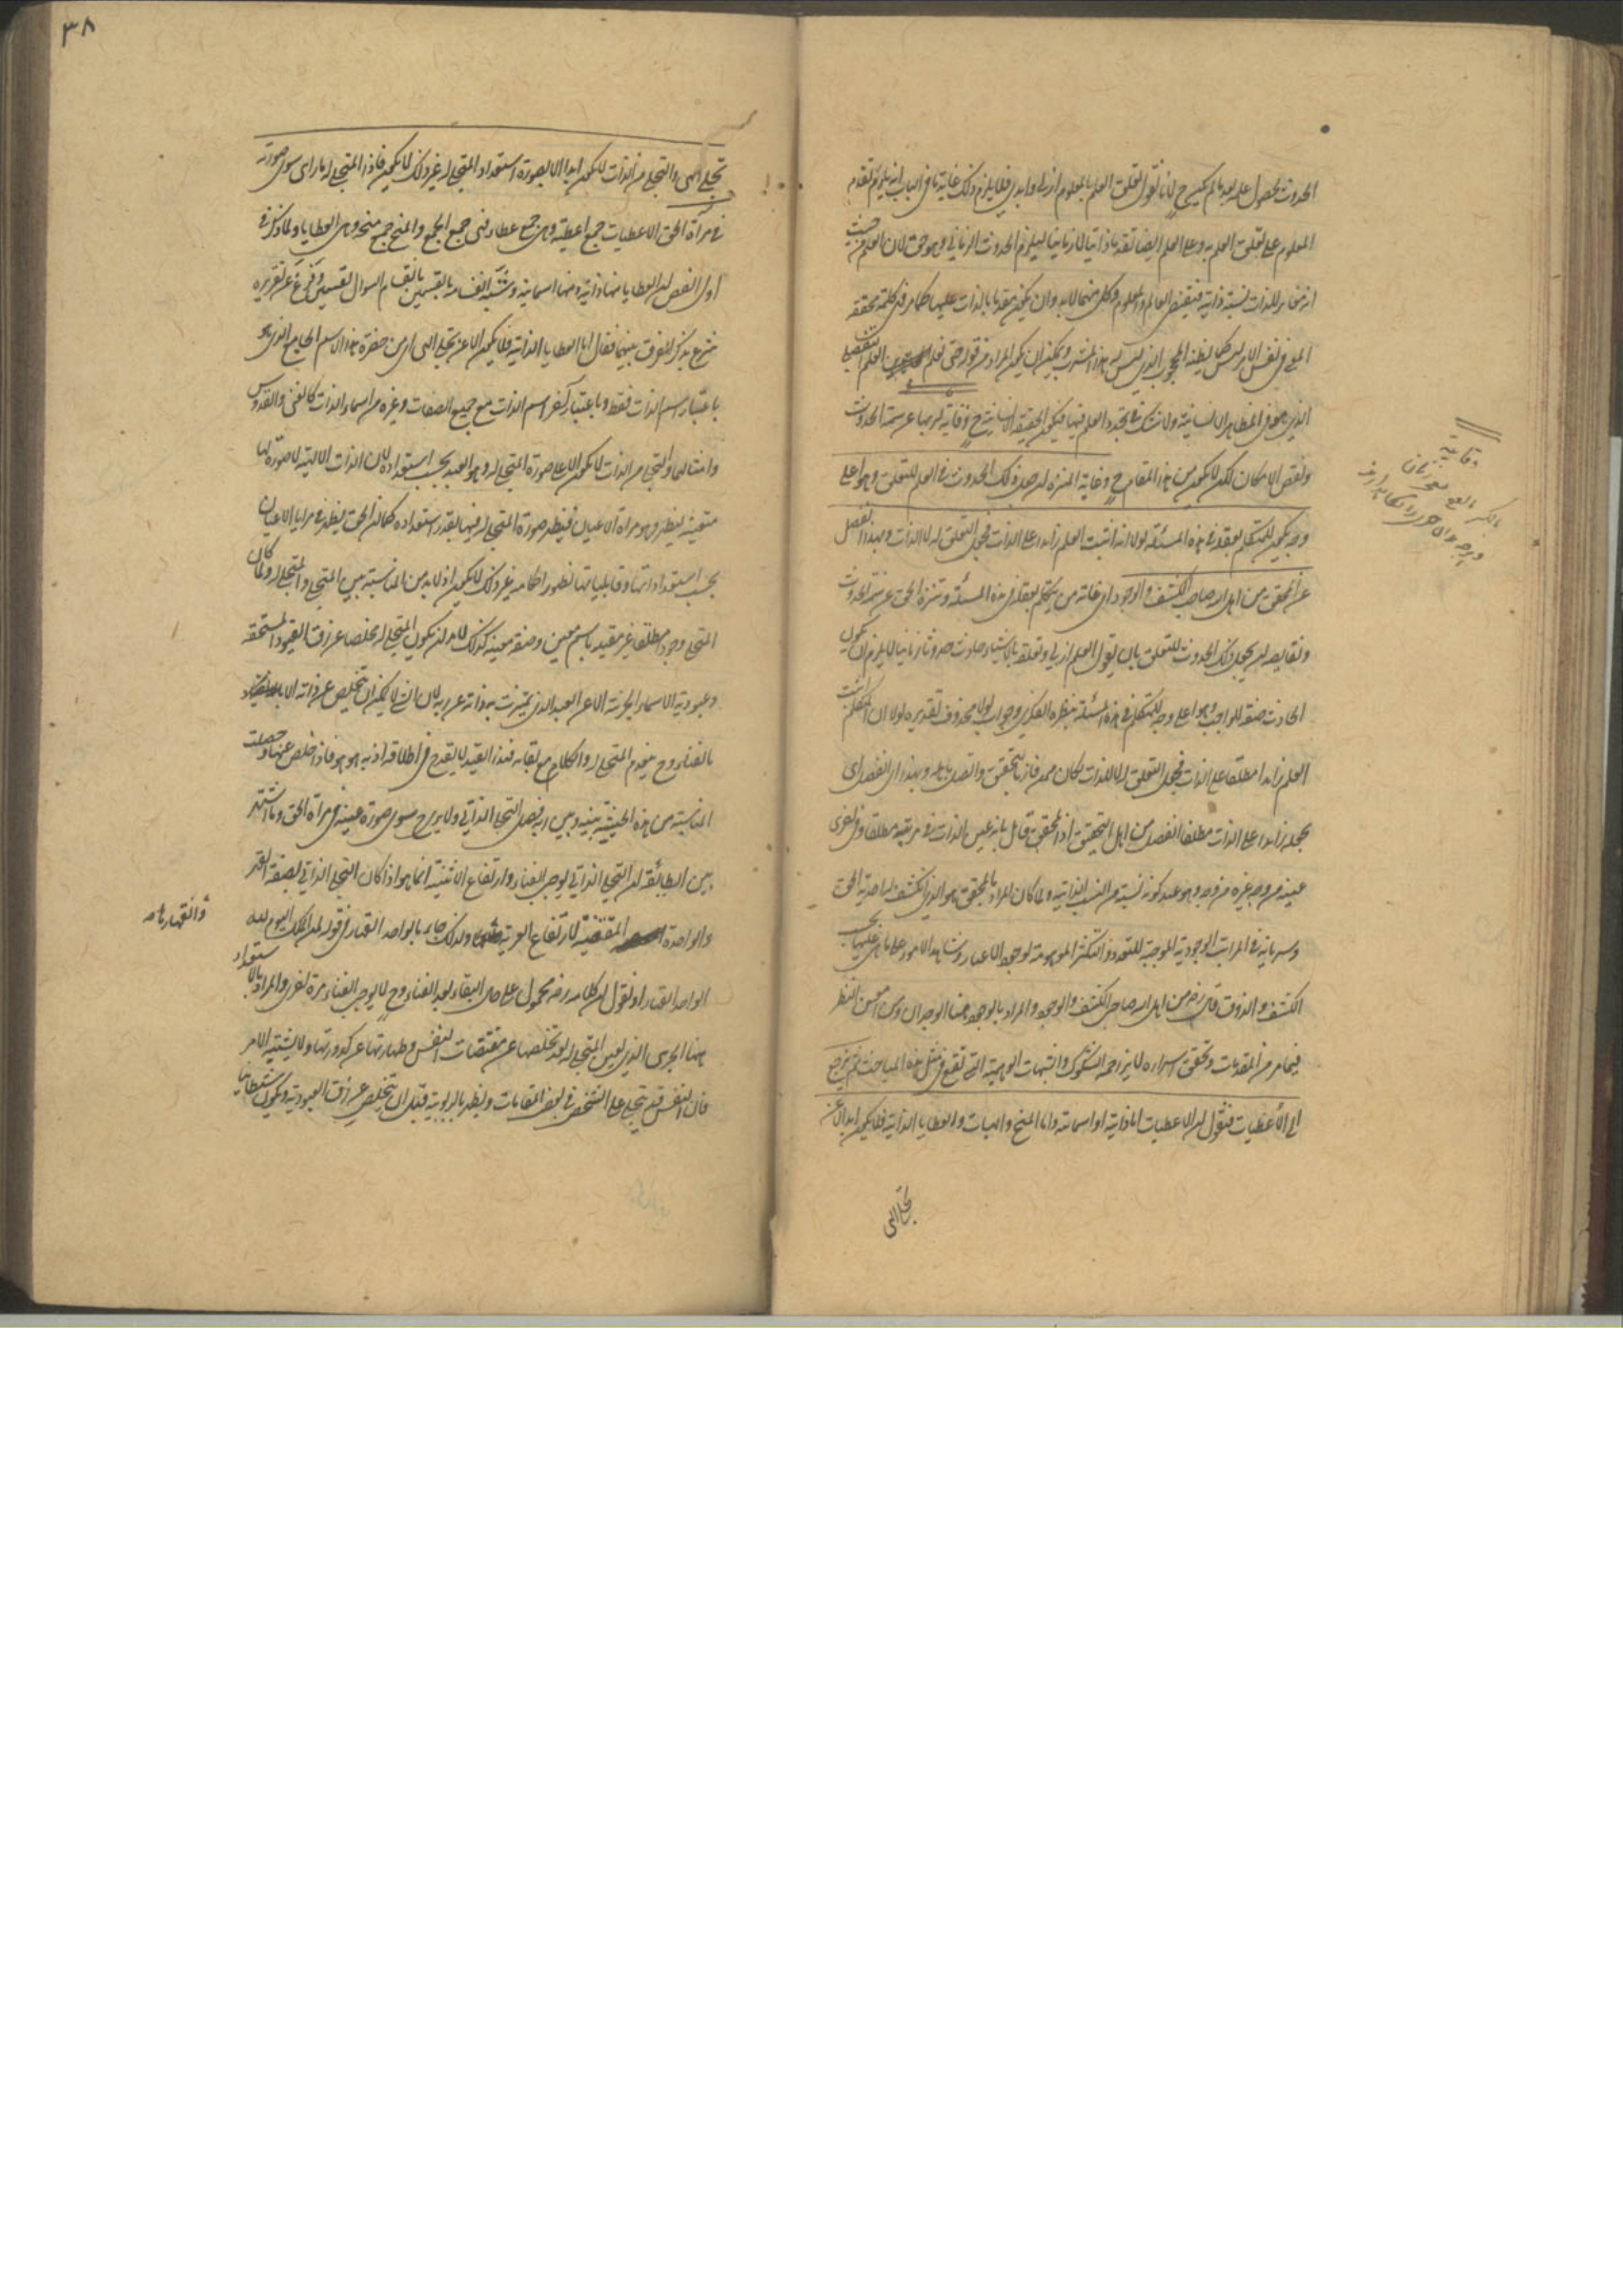 الحدوث لحصول علمه بعد ما لم يكن ح لانا نقول تعلق العلم بالمعلوم ازلي وابدي فلا يلزم ذلك غاية ما في الباب انه يلزم تقدم
المعلوم على تعلق العلم به وعلى العلم ايضا تقدما ذاتيا لا زمانيا ليلزم الحدوث الزماني وهو حق لان العلم من حيث
انه مغاير للذات نسبة ذاتية فيقتضي العالم والمعلوم وكل منهما لا بد وان يكون مقدما بالذات عليها
في نفس الامر ليس كما يظنه المحجوب الذي ليس له هذا المشرب ويمكن ان يكون المراد من قوله حتى نعلم العلم التفصيلي
الذي هو في المظاهر الانسانية ولا شك في تجدد العلم فيها فيكون الحقيقة الانسانية ح وقاية لربها عن سمة الحدوث
ونقص الامكان لكن لا يكون من هذا المقام ح وغاية المنزه ان يجعل ذلك الحدوث في العلم للتعلق وهو اعلى
وجه يكون للمتكلم بعقله في هذه المسئلة لولا انه اثبت العلم زائدا على الذات فجعل التعلق له لا للذات وبهذا انفصل
عن المحقق من اهل الله صاحب الكشف والوجود اي غاية من يتكلم بعقله في هذه المسئلة وتنزه الحق عن سمة الحدوث
ونقايصه ان يجعل ذلك الحدوث للتعلق بان يقول العلم ازلي وتعلقه بالاشياء حادث حدوثا زمانيا لئلا يلزم ان يكون
الحادث صفة للواجب وهو اعلى وجه للمتكلم في هذه المسئلة بنظره الفكري وجواب لولا محذوف تقديره لولا ان المتكلم اثبت
العلم زائدا مطلقا على الذات فجعل التعلق له لا للذات لكان ممن فاز بالتحقيق واتصل باهله وبهذا اي انفصل اي
بجعله زائدا على الذات مطلقا انفصل من اهل التحقيق اذ المحقق قائل بانه عين الذات في مرتبة مطلقا وفي اخرى
عينه من وجه غيره من وجه وهو عند كونه نسبة من النسب الذاتية ولما كان المراد بالمحقق هو الذي انكشف له احدية الحق
وسريانه في المراتب الوجودية الموجبة للتعدد والتكثر الموهومة لوجود الاغيار وشاهد الامور على ما هي عليها بحسب
الكشف والذوق قال رضي من اهل الله صاحب الكشف والوجود والمراد بالوجود هنا الوجدان ومن امعن النظر
فيما مر من المقدمات وتحقق اسراره لا يزاحمه الشكوك والشبهات الوهمية التي تقع في مثل هذه المباحث ثم نرجع
الى الأعطيات فنقول ان الاعطيات اما ذاتية او اسمائية واما المنح والهبات والعطايا الذاتية فلا يكون ابدا الا عن
تجلي الهي
٣٨
تجلي الهي والتجلي من الذات لا يكون ابدا الا بصورة استعداد المتجلى له غير ذلك لا يكون فاذا المتجلى له ما راى سوى صورته
في مرآة الحق الاعطيات جمع اعطية وهي جمع عطاء فهي جمع الجمع والمنح جمع منحة وهي العطايا ولما ذكر في
اول الفص ان العطايا منها ذاتية ومنها اسمائية وشبه القسمين بانقسام السوال بقسمين وفرغ عن تقريره
شرع يذكر الفرق بينهما فقال اما العطايا الذاتية فلا يكون الا عن تجلي الهي اي من حضرة هذا الاسم الجامع الذي هو
باعتبار اسم الذات فقط وباعتبار آخر اسم الذات مع جميع الصفات وغيره من اسماء الذات كالغني والقدوس
وامثالهما والتجلي من الذات لا يكون الا على صورة المتجلى له وهو العبد بحسب استعداده لان الذات الالهية لا صورة لها
متعينة ليظهر وهو مراة الاعيان فيظهر صورة المتجلى له فيها بقدر استعداده كما ان الحق يظهر في مرايا الاعيان
بحسب استعداداتها وقابلياتها لظهور احكامه غير ذلك لا يكون اذ لا بد من المناسبة بين المتجلي والمتجلى له ولما كان
المتجلي وجودا مطلقا غير مقيد باسم معين وصفة معينة كذلك لا بد ان يكون المتجلى له مخلصا عن رق القيود المستحقة
وعبودية الاسماء الجزئية الا عن القيد الذي تميزت به ذاته عن ربه لان الشيء لا يمكن ان يتخلص عن ذاته الا
بالفناء وح ينعدم المتجلى له والكلام مع بقائه فهذا القيد لا يقدح في اطلاقه اذ به هو هو فاذا خلص عنها وحصلت
المناسبة من هذه الحيثية بينه وبين ربه فيحصل التجلي الذاتي ولا يرى ح سوى صورة عينه في مرآة الحق وما اشتهر
بين الطائفة ان التجلي الذاتي يوجب الفناء وارتفاع الاثنينية انما هو اذا كان التجلي الذاتي بصفة القهر
والواحدة المقتضية لارتفاع الغيرية ولذلك جاء بالواحد القهار في قوله لمن الملك اليوم لله
الواحد القهار او نقول ان كلامه رضي محمول على حال البقاء بعد الفناء وح لا يوجب الفناء مرة اخرى والمراد بالاستعداد
هنا الجزئي الذي لعين المتجلى له بعد تخلصها عن مقتضيات النفس وطهارتها عن كدورتها ولا يشتبه الامر
فان النفس قد يتجلى على الشخص في بعض المقامات ويظهر بالربوبية قبل ان يتخلص عن رق العبودية ويكون شيطانيا